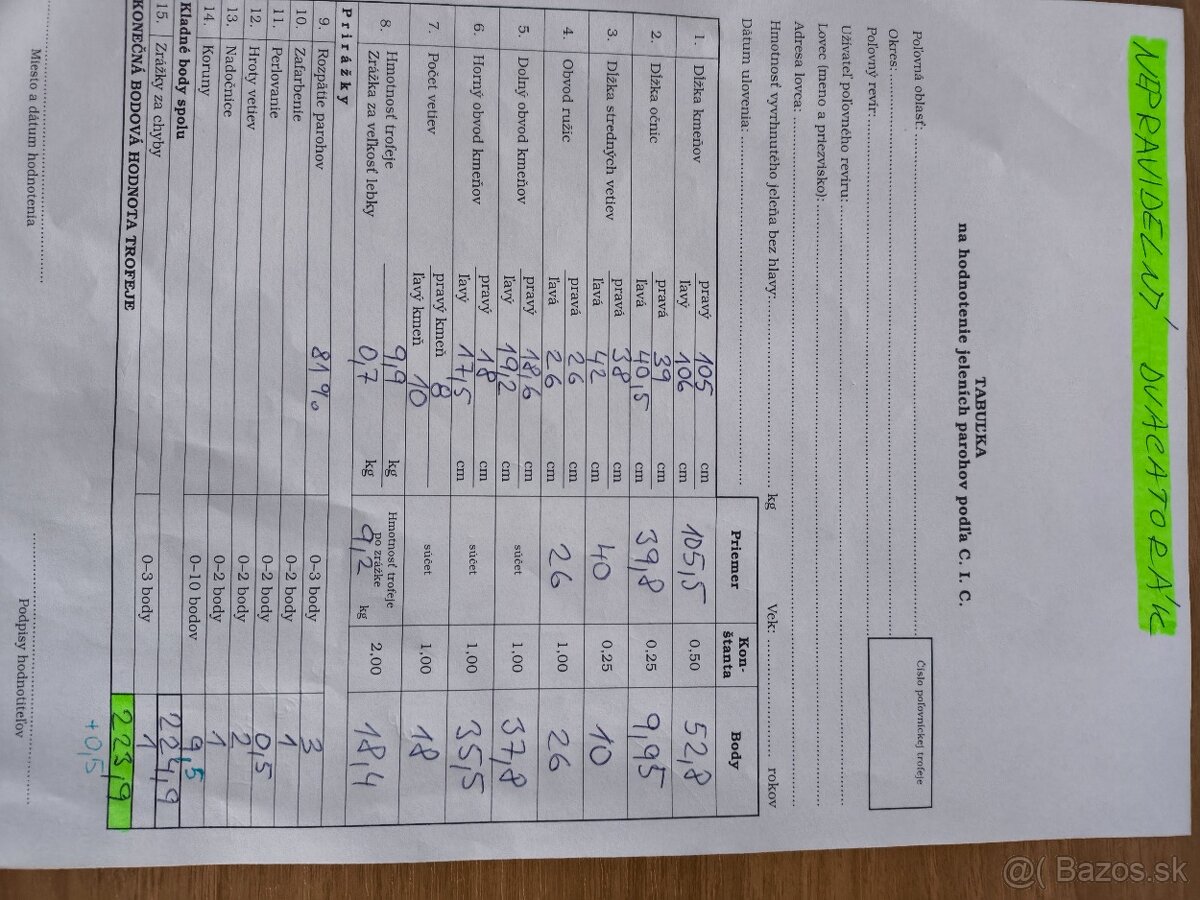 NEPRAVIDELNÝ DVACATORÁK
TABUĽKA
na hodnotenie jeleních parohov podľa C. I. C.
Číslo poľovníckej trofeje
Poľovná oblasť:
Okres:
Poľovný revír:
Užívateľ poľovného revíru:
Lovec (meno a priezvisko):
Adresa lovca:
Hmotnosť vyvrhnutého jeleňa bez hlavy: kg Vek: rokov
Dátum ulovenia:
Priemer Kon-štanta Body
1. Dĺžka kmeňov pravý 105 cm
ľavý 106 cm 105,5 0,50 52,8
2. Dĺžka očníc pravá 39 cm
ľavá 40,5 cm 39,8 0,25 9,95
3. Dĺžka stredných vetiev pravá 38 cm
ľavá 42 cm 40 0,25 10
4. Obvod ružíc pravá 26 cm
ľavá 26 cm 26 1,00 26
5. Dolný obvod kmeňov pravý 18,6 cm
ľavý 19,2 cm súčet 1,00 37,8
6. Horný obvod kmeňov pravý 18 cm
ľavý 17,5 cm súčet 1,00 35,5
7. Počet vetiev pravý kmeň 8
ľavý kmeň 10 súčet 1,00 18
8. Hmotnosť trofeje 9,9 kg Hmotnosť trofeje
Zrážka za veľkosť lebky 0,7 kg po zrážke 9,2 kg 2,00 18,4
Prirážky
9. Rozpätie parohov 81% 0–3 body 3
10. Zafarbenie 0–2 body 1
11. Perlovanie 0–2 body 0,5
12. Hroty vetiev 0–2 body 2
13. Nadočnice 0–2 body 1
14. Koruny 0–10 bodov 9,5
Kladné body spolu 224,9
15. Zrážky za chyby 0–3 body 1
KONEČNÁ BODOVÁ HODNOTA TROFEJE 223,9
+0,5
Miesto a dátum hodnotenia Podpisy hodnotiteľov
Bazos.sk